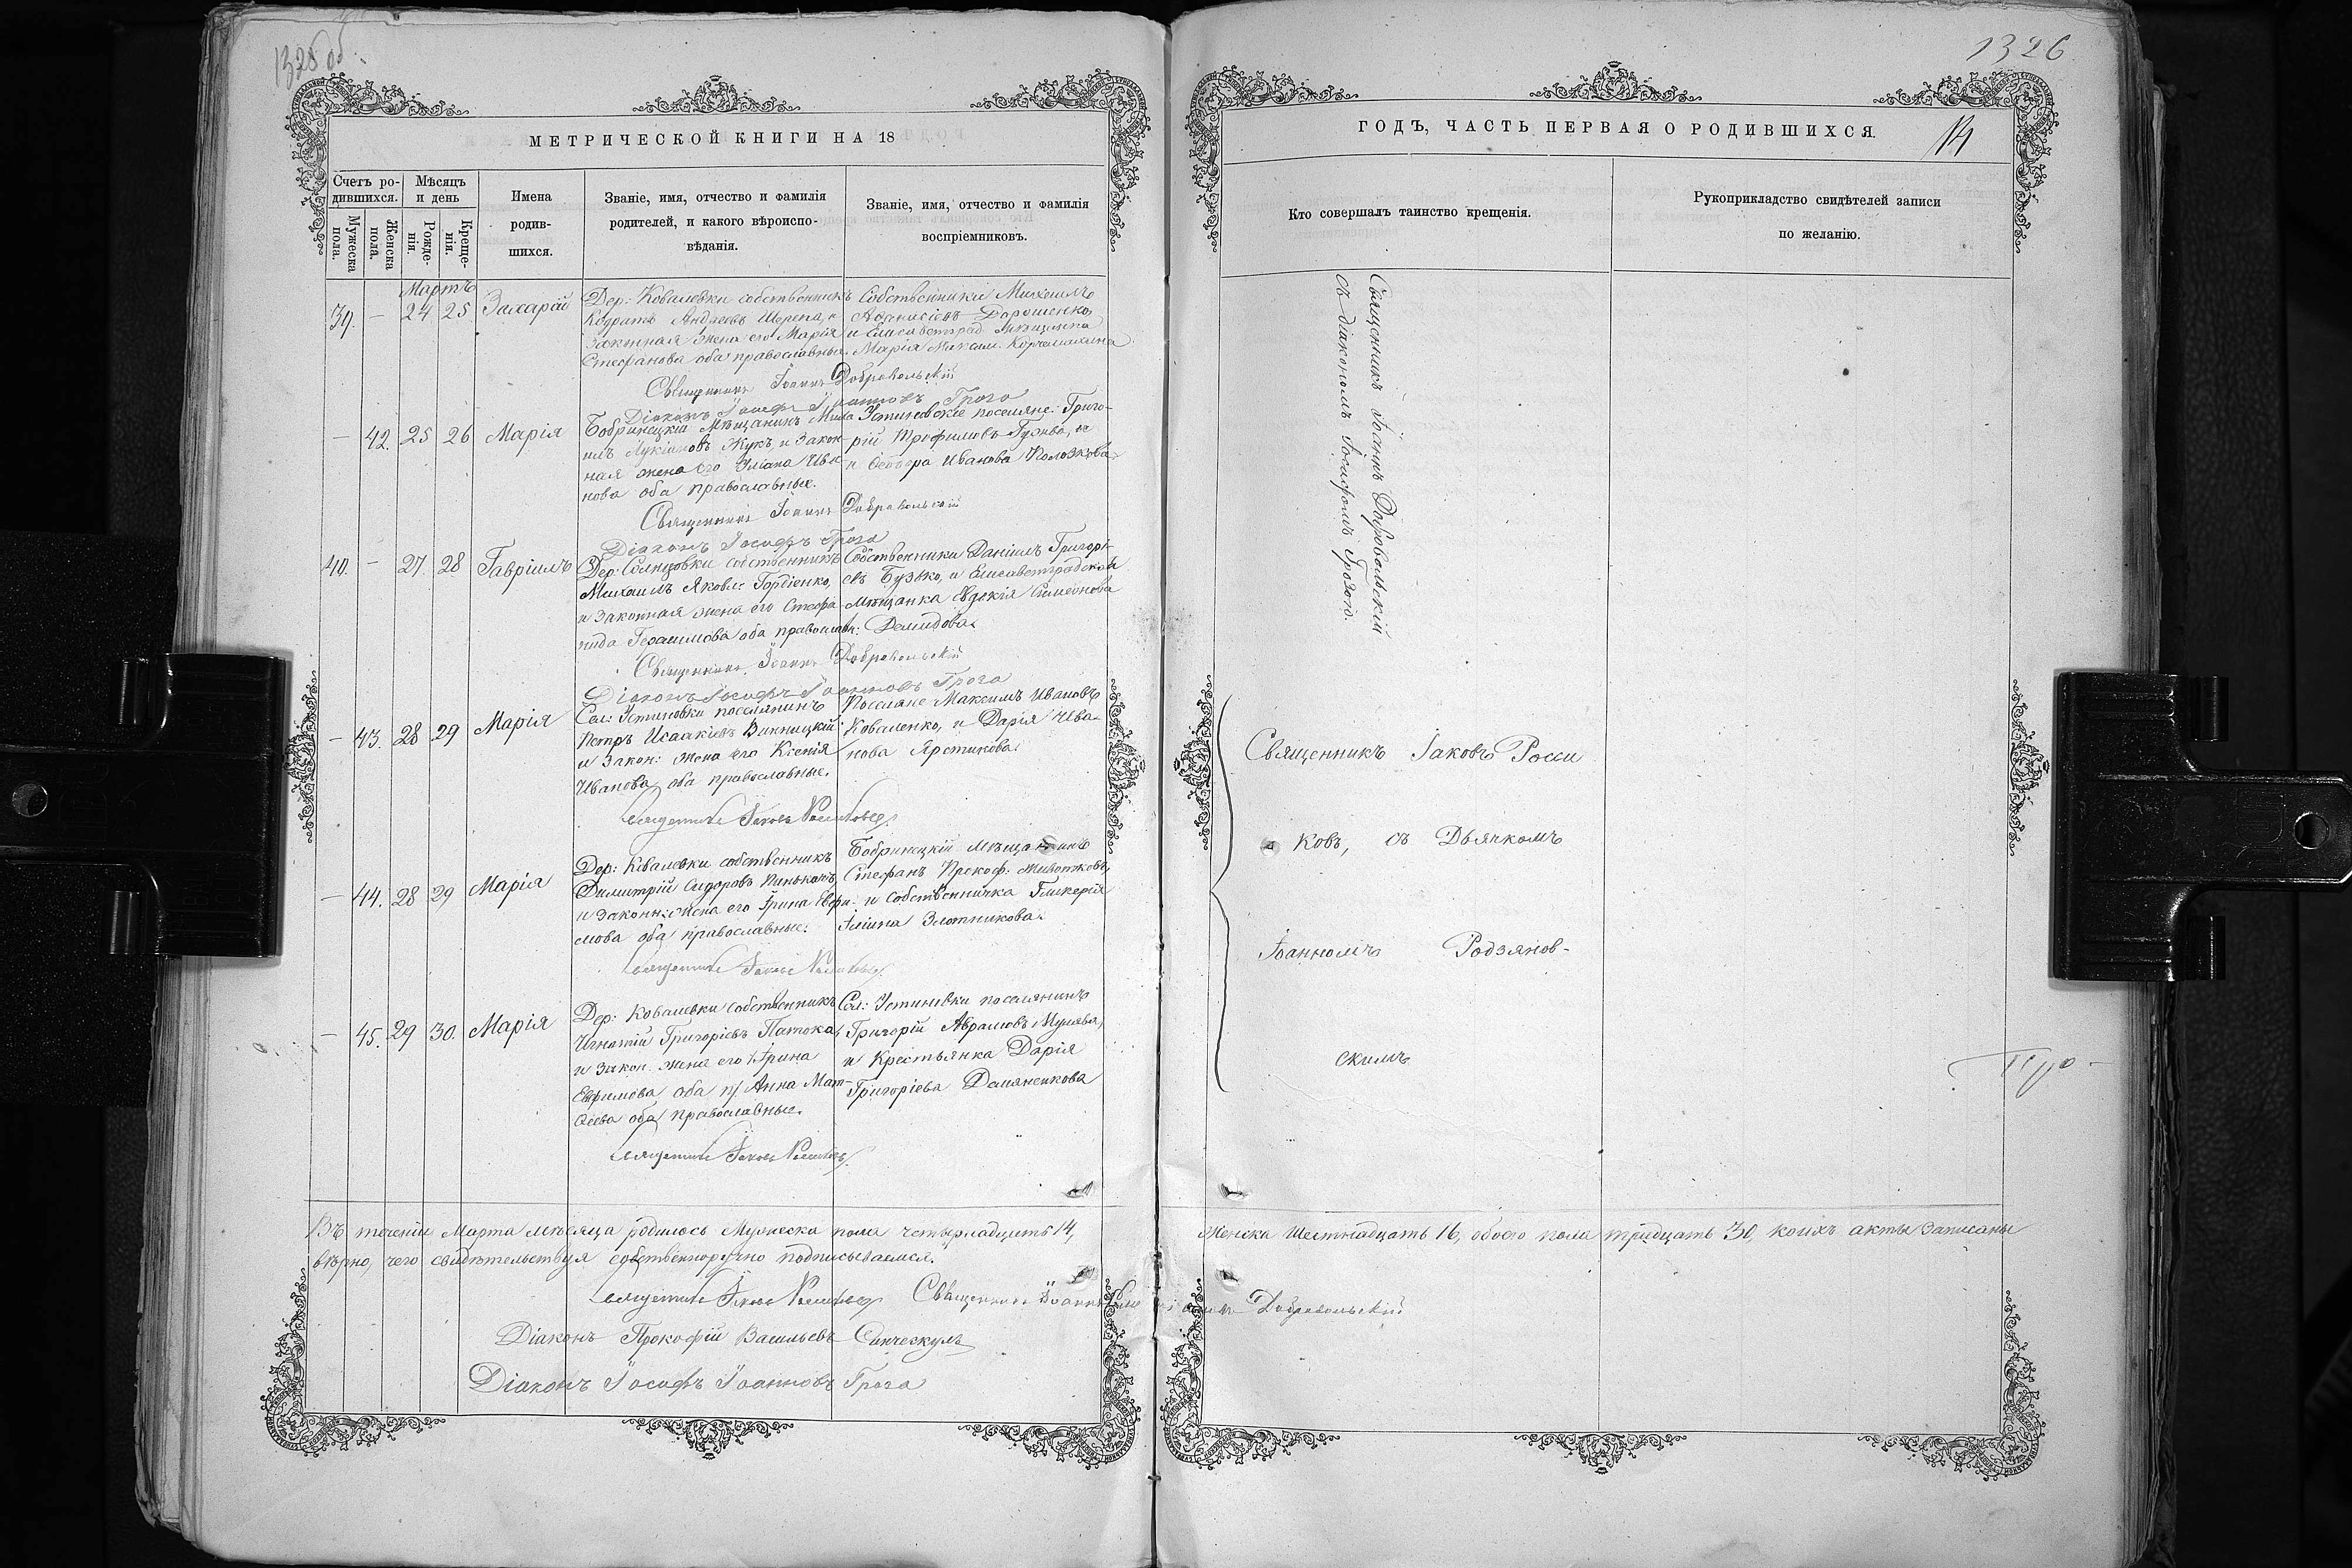 1325 об.
МЕТРИЧЕСКОЙ КНИГИ НА 18
Счетъ ро-
дившихся.
Мужеска
пола.
Женска
пола.
Мѣсяцъ
и день
Рожде-
нія.
Креще-
нія.
Имена
родив-
шихся.
Званіе, имя, отчество и фамилія
родителей, и какого вѣроиспо-
вѣданія.
Званіе, имя, отчество и фамилія
воспріемниковъ.
Мартъ
39. — 24 25 Захарій
Дер: Ковалевки собственникъ
Кодратъ Андреевъ и
законная жена его Марія
Стефанова оба православные.
Собственники Михаилъ
Аѳанасіевъ Дорошенко,
и Елисаветград. мѣщанка
Марія Максим.
Священникъ Іоаннъ Добровольскій
Діаконъ Іосифъ Іоанновъ Гроза
— 42. 25 26 Марія
Бобринецкій Мѣщанинъ Миха
илъ Лукіановъ Жукъ, и закон-
ная жена его Уліана Ива-
нова оба православные.
Устиновскіе поселяне: Григо-
рій Трофимовъ и
и Ѳеодора Иванова
Священникъ Іоаннъ Добровольскій
Діаконъ Іосифъ Гроза
40. — 27. 28 Гавріилъ
Дер: собственникъ
Михаилъ Яковл: Гордіенко,
и законная жена его Стефа-
нида Герасимова оба православн:
Собственники Даніилъ Григорі-
евъ Бузько, и Елисаветградская
Мѣщанка Евдокія Симеонова
Демидова.
Священникъ Іоаннъ Добровольскій
Діаконъ Іосифъ Іоанновъ Гроза
— 43. 28 29 Марія
Сел: Устиновки поселянинъ
Петръ Исаакіевъ Винницкій
и закон: жена его Ксенія
Иванова оба православные.
Поселяне Максимъ Ивановъ
Коваленко, и Дарія Ива-
нова
Священникъ Іаковъ
— 44. 28 29 Марія
Дер: Ковалевки собственникъ
Димитрій Сидоровъ
и законн: жена его Ірина Ефри-
мова оба православные.
Бобринецкій мѣщанинъ
Стефанъ Прокоф.
и собственничка Гликерія
Іліина Злотникова.
Священникъ Іаковъ
— 45. 29 30. Марія
Дер: Ковалевки собственникъ
Игнатій Григоріевъ Патока,
и закон. жена его Ірина
Ефримова оба п/. Анна Мат-
ѳеева оба православные.
Сел: Устиновки поселянинъ
Григорій Аврамовъ Мулява,
и Крестьянка Дарія
Григоріева Демяненкова
Священникъ Іаковъ
Въ теченіи Марта мѣсяца родилось Мужеска пола четырнадцать 14,
вѣрно, чего свидѣтельствуя собственноручно подписываемся.
Священникъ Іаковъ Священникъ Іоаннъ
Діаконъ Прокофій Васильевъ
Діаконъ Іосифъ Іоанновъ Гроза
1326
ГОДЪ, ЧАСТЬ ПЕРВАЯ О РОДИВШИХСЯ.
14
Кто совершалъ таинство крещенія.
Рукоприкладство свидѣтелей записи
по желанію.
Священникъ Іоаннъ Добровольскій
съ діакономъ Іосифомъ Грозою.
Священникъ Іаковъ Росси
ковъ, съ Дьячкомъ
Іоанномъ Родзянов-
скимъ
Женска Шестнадцать 16, обоего пола тридцать 30, коихъ акты записаны
Добровольскій